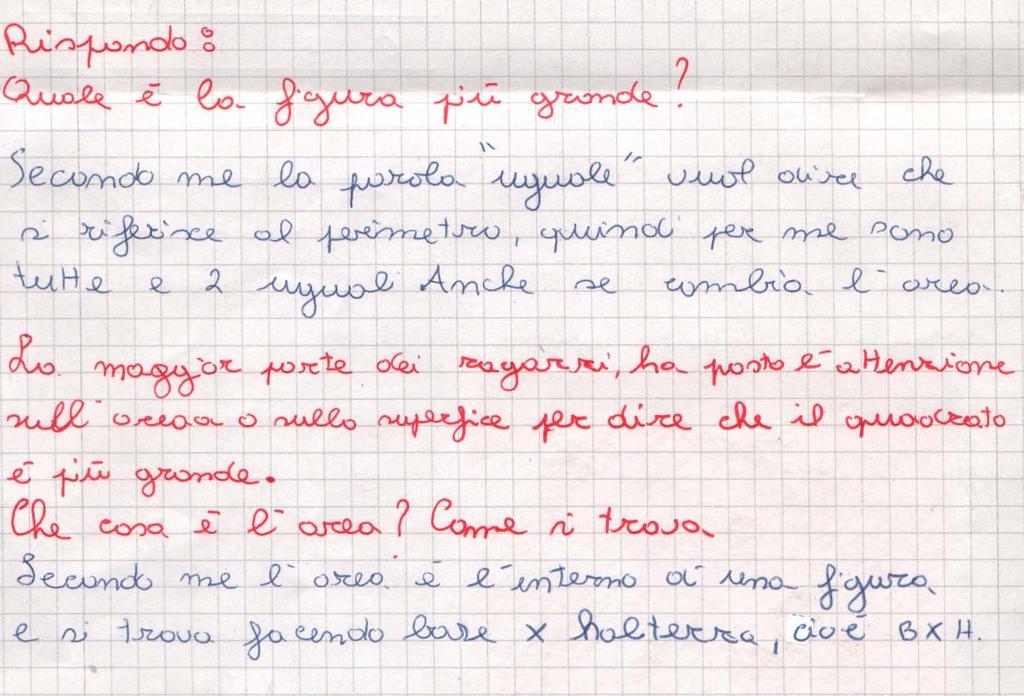 Rispondo:
Quale è la figura più grande?
Secondo me la parola "uguale" vuol dire che
si riferisce al perimetro, quindi per me sono
tutte e 2 ugual Anche se cambia l'area.
La maggior parte dei ragazzi, ha posto l'attenzione
sull'areaa o sullo superfice per dire che il quadrato
è più grande.
Che cosa è l'area? Come si trova
Secondo me l'area è l'interno di una figura
e si trova facendo base x halterza, cioè B X H.